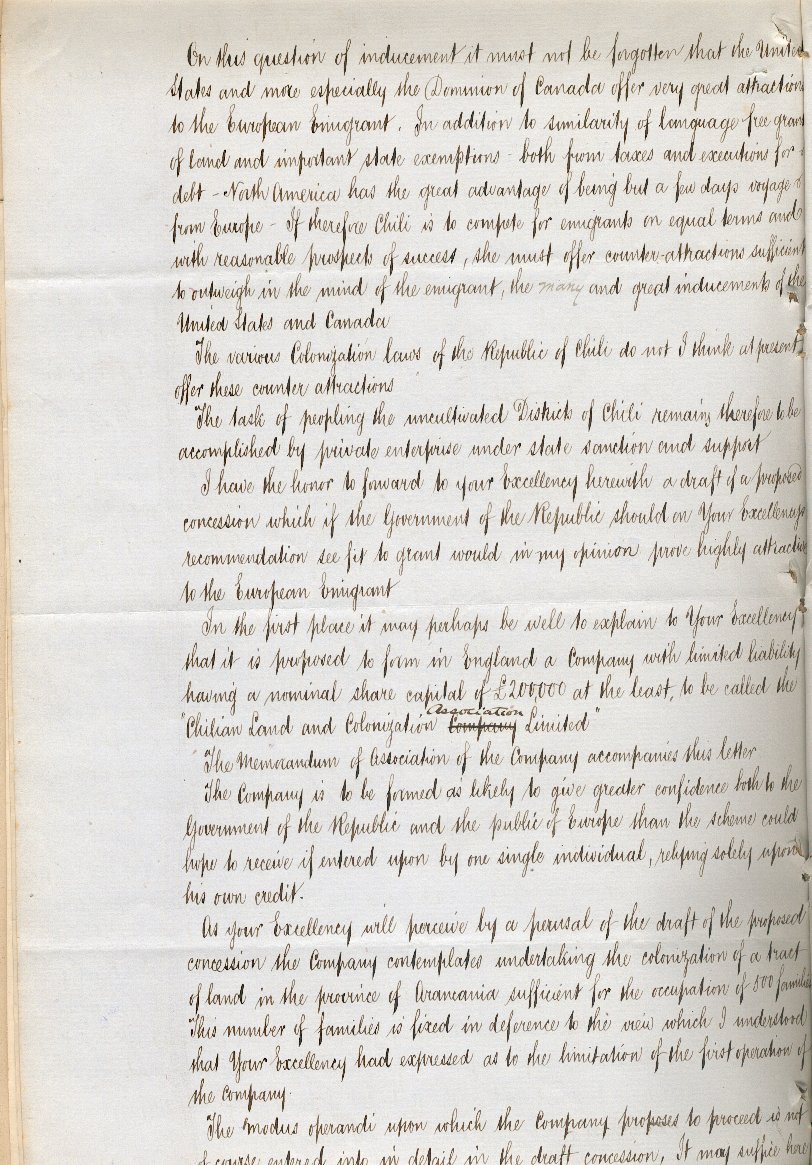 On this question of inducement it must not be forgotten that the United
States and more especially the Dominion of Canada offer very great attractions
to the European Emigrant. In addition to similarity of language free grants
of land and important state exemptions - both from taxes and executions for
debt - North America has the great advantage of being but a few days voyage
from Europe - If therefore Chili is to compete for emigrants on equal terms and
with reasonable prospects of success, she must offer counter-attractions sufficient
to outweigh in the mind of the emigrant, the many and great inducements of the
United States and Canada
The various Colonization laws of the Republic of Chili do not I think at present
offer these counter attractions
The task of peopling the uncultivated Districts of Chili remains therefore to be
accomplished by private enterprise under state sanction and support
I have the honor to forward to your Excellency herewith a draft of a proposed
concession which if the Government of the Republic should on Your Excellency's
recommendation see fit to grant would in my opinion prove highly attractive
to the European Emigrant
In the first place it may perhaps be well to explain to Your Excellency
that it is proposed to form in England a Company with limited liability
having a nominal share capital of £200,000 at the least, to be called the
Association
"Chilian Land and Colonization Company Limited"
The Memorandum of Association of the Company accompanies this letter
The Company is to be formed as likely to give greater confidence both to the
Government of the Republic and the public of Europe than the scheme could
hope to receive if entered upon by one single individual, relying solely upon
his own credit.
As your Excellency will perceive by a perusal of the draft of the proposed
concession the Company contemplates undertaking the colonization of a tract
of land in the province of Arancania sufficient for the occupation of 500 families
This number of families is fixed in deference to the view which I understood
that Your Excellency had expressed as to the limitation of the first operation of
the company.
The modus operandi upon which the Company proposes to proceed is not
of course entered into in detail in the draft concession, It may suffice here